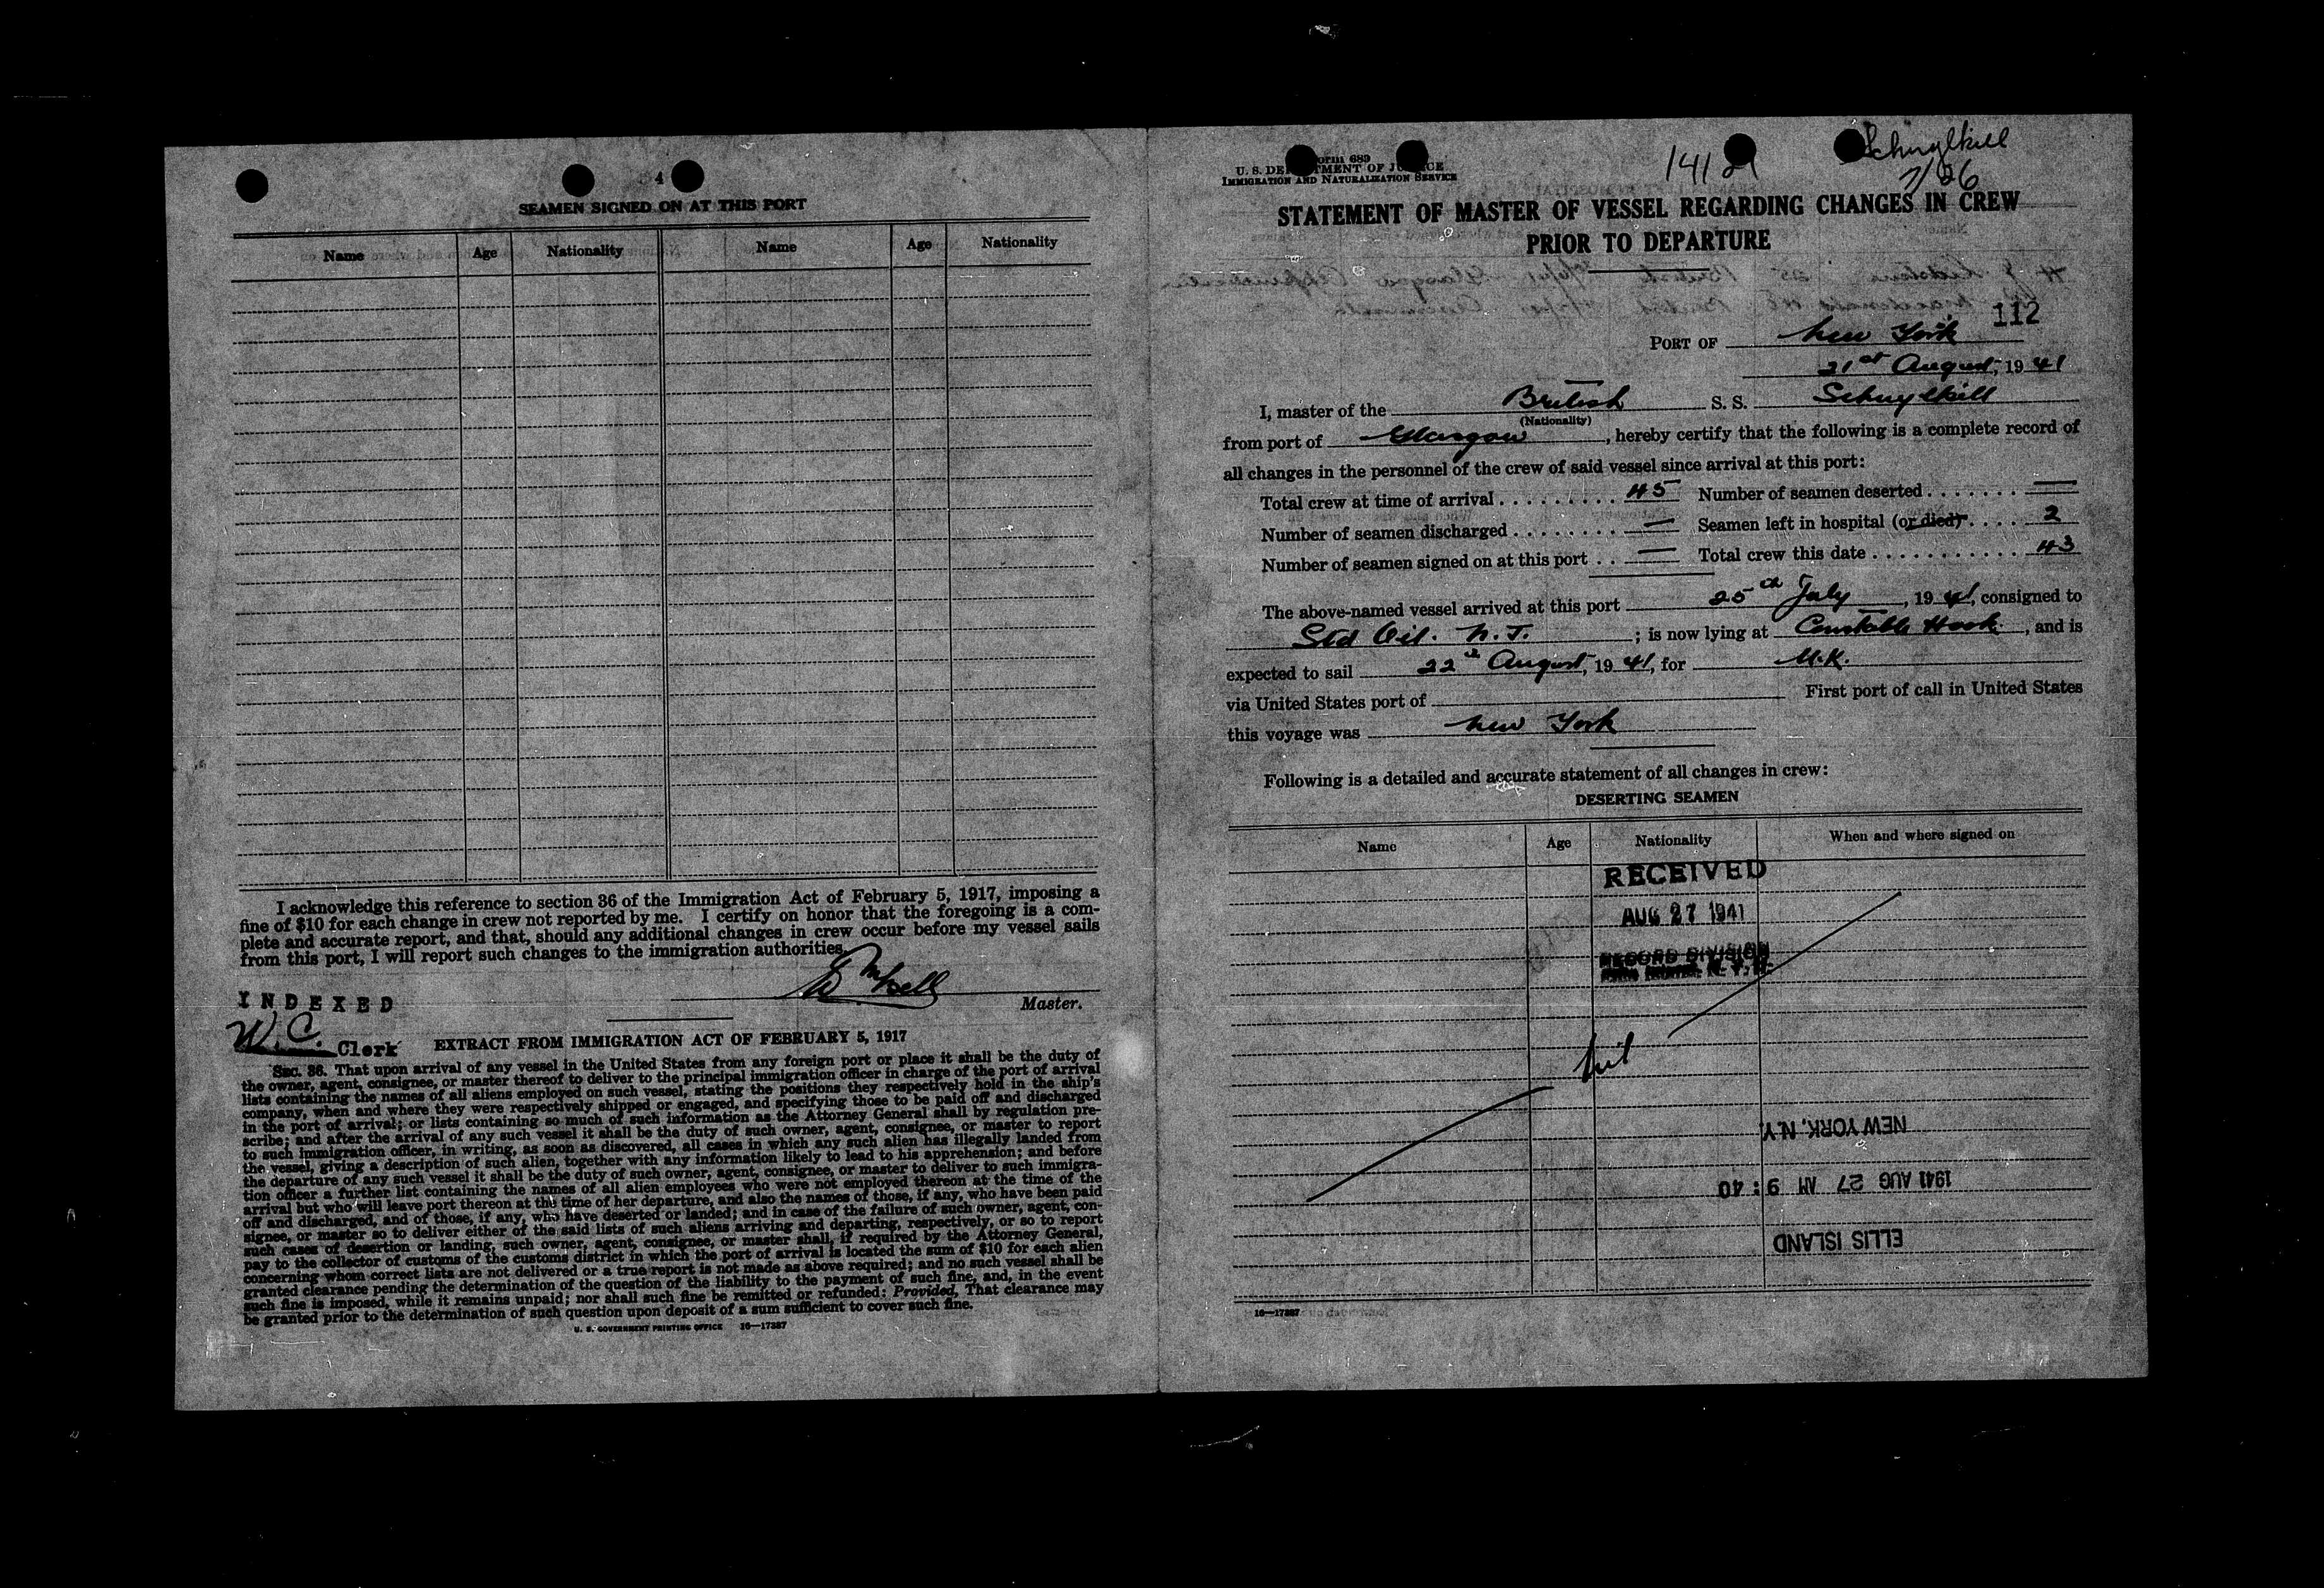 4
SEAMEN SIGNED ON AT THIS PORT
Name Age Nationality Name Age Nationality
I acknowledge this reference to section 36 of the Immigration Act of February 5, 1917, imposing a
fine of $10 for each change in crew not reported by me. I certify on honor that the foregoing is a com-
plete and accurate report, and that, should any additional changes in crew occur before my vessel sails
from this port, I will report such changes to the immigration authorities.
Master.
INDEXED
W.C. Clerk
EXTRACT FROM IMMIGRATION ACT OF FEBRUARY 5, 1917
SEC. 36. That upon arrival of any vessel in the United States from any foreign port or place it shall be the duty of
the owner, agent, consignee, or master thereof to deliver to the principal immigration officer in charge of the port of arrival
lists containing the names of all aliens employed on such vessel, stating the positions they respectively hold in the ship's
company, when and where they were respectively shipped or engaged, and specifying those to be paid off and discharged
in the port of arrival; or lists containing so much of such information as the Attorney General shall by regulation pre-
scribe; and after the arrival of any such vessel it shall be the duty of such owner, agent, consignee, or master to report
to such immigration officer, in writing, as soon as discovered, all cases in which any such alien has illegally landed from
the vessel, giving a description of such alien, together with any information likely to lead to his apprehension; and before
the departure of any such vessel it shall be the duty of such owner, agent, consignee, or master to deliver to such immigra-
tion officer a further list containing the names of all alien employees who were not employed thereon at the time of the
arrival but who will leave port thereon at the time of her departure, and also the names of those, if any, who have been paid
off and discharged, and of those, if any, who have deserted or landed; and in case of the failure of such owner, agent, con-
signee, or master so to deliver either of the said lists of such aliens arriving and departing, respectively, or so to report
such cases of desertion or landing, such owner, agent, consignee, or master shall, if required by the Attorney General,
pay to the collector of customs of the customs district in which the port of arrival is located the sum of $10 for each alien
concerning whom correct lists are not delivered or a true report is not made as above required; and no such vessel shall be
granted clearance pending the determination of the question of the liability to the payment of such fine, and, in the event
such fine is imposed, while it remains unpaid; nor shall such fine be remitted or refunded: Provided, That clearance may
be granted prior to the determination of such question upon deposit of a sum sufficient to cover such fine.
U. S. GOVERNMENT PRINTING OFFICE 16—17387
Form 689
U. S. DEPARTMENT OF JUSTICE
IMMIGRATION AND NATURALIZATION SERVICE
Schuylkill
7/26
STATEMENT OF MASTER OF VESSEL REGARDING CHANGES IN CREW
PRIOR TO DEPARTURE
112
PORT OF New York
21st August, 1941
I, master of the British S. S. Schuylkill
(Nationality)
from port of Glasgow, hereby certify that the following is a complete record of
all changes in the personnel of the crew of said vessel since arrival at this port:
Total crew at time of arrival . . . . . . . . . 45 Number of seamen deserted . . . . . . . —
Number of seamen discharged . . . . . . . . — Seamen left in hospital (or died) . . . . 2
Number of seamen signed on at this port . . — Total crew this date . . . . . . . . . . . . 43
The above-named vessel arrived at this port 25th July, 1941, consigned to
Std Oil. N.J.; is now lying at Constable Hook, and is
expected to sail 22 August, 1941, for U.K.
via United States port of First port of call in United States
this voyage was New York
Following is a detailed and accurate statement of all changes in crew:
DESERTING SEAMEN
Name Age Nationality When and where signed on
RECEIVED
AUG 27 1941
RECORD DIVISION
nil
NEW YORK, N.Y.
1941 AUG 27 AM 9:40
ELLIS ISLAND
16—17387